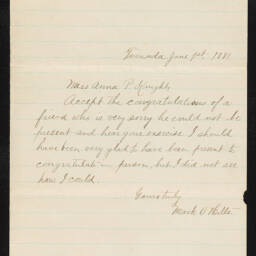 Towanda June 1st, 1881
Miss Anna P. Knight
Accept the congratulations of a
friend who is very sorry he could not be
present and hear your exercise. I should
have been very glad to have been present to
congratulate in person, but I did not see
how I could.
Yours truly
Mark O